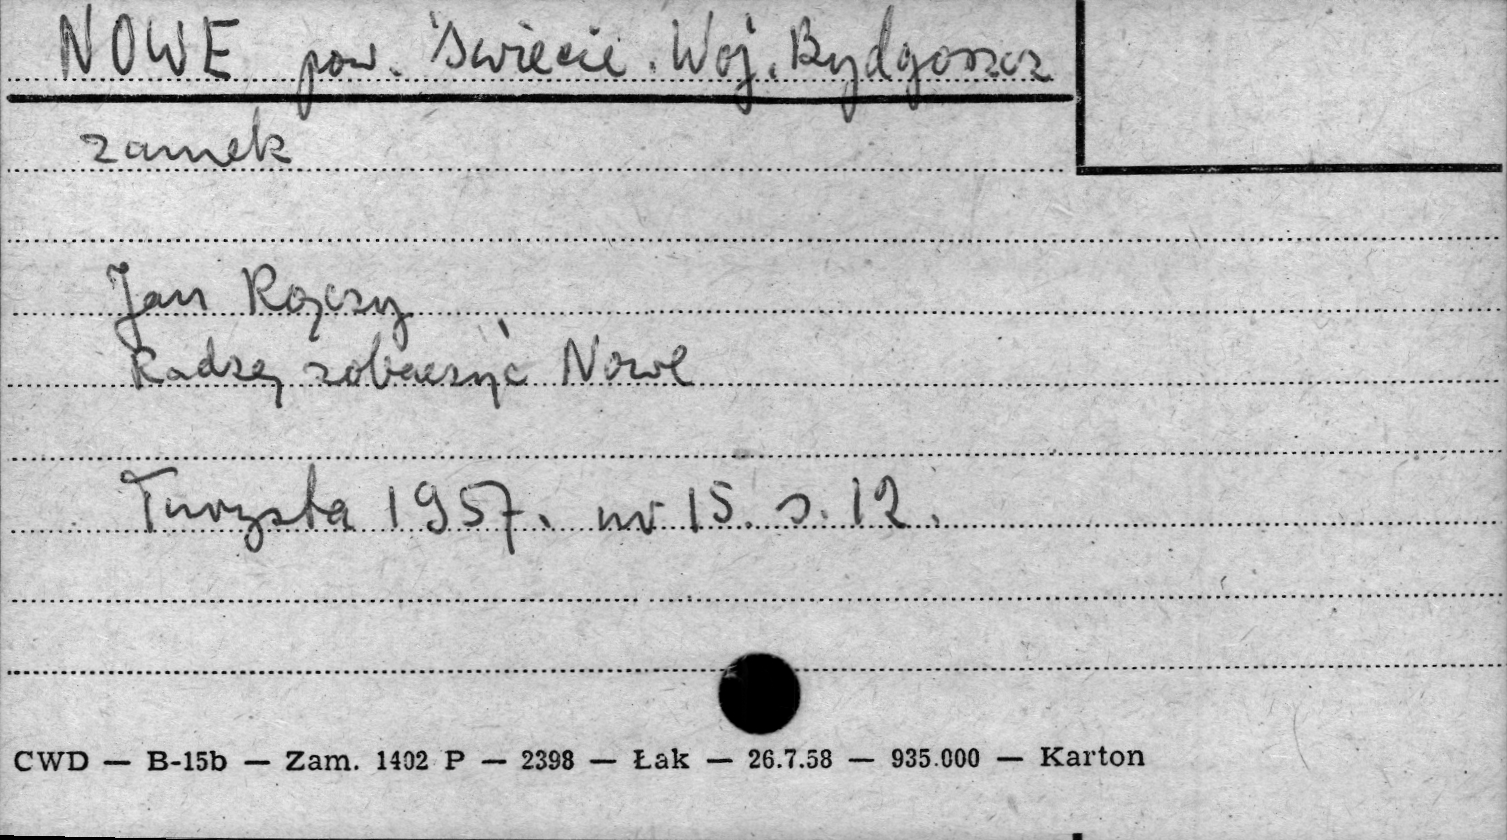 NOWE pow. Świecie. Woj. Bydgoszcz
zamek
Jan
Radzę zobaczyć Nowe
Turysta 1957. nr 15. s. 12.
CWD — B-15b — Zam. 1402 P — 2398 — Łak — 26.7.58 — 935.000 — Karton